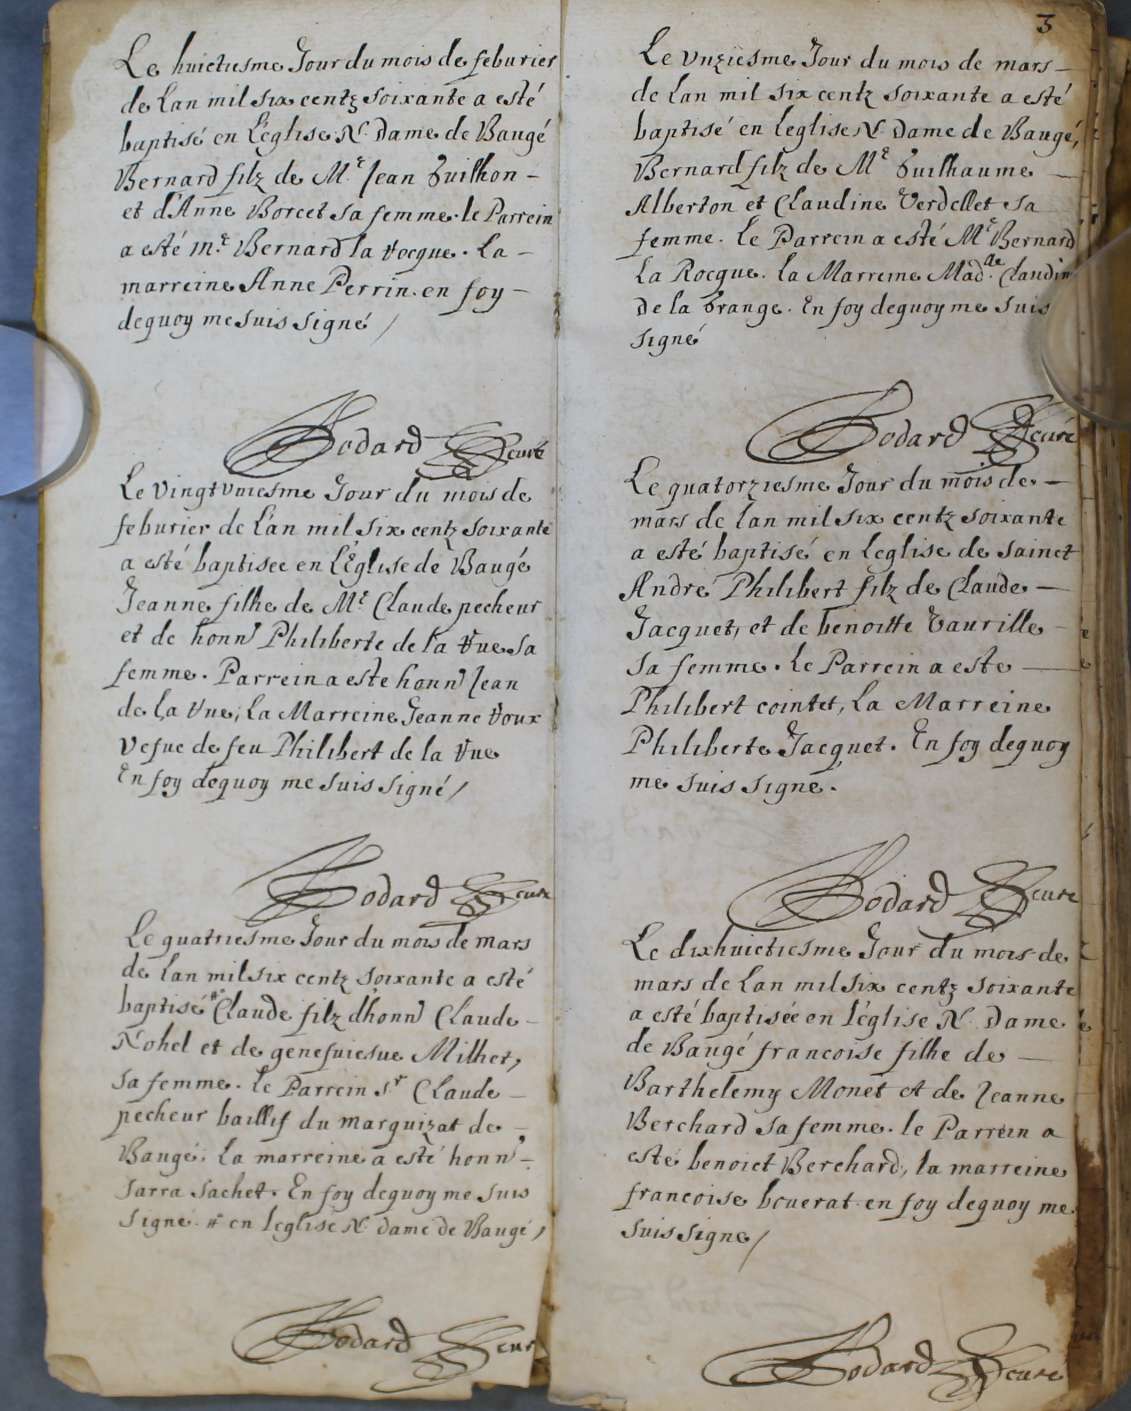 Le huictiesme Jour du mois de feburier
de Lan mil six centz soixante a esté
baptisé en L'eglise N. Dame de Baugé
Bernard filz de Me Jean Guilhon -
et d'Anne Borcet sa femme. le Parrein
a esté me Bernard la Rocque. La -
marreine Anne Perrin. en foy -
dequoy me suis signé /
Bodard curé
Le vingtvniesme Jour du mois de
feburier de L'an mil six centz soixante
a esté baptisee en L'Eglise de Baugé
Jeanne filhe de Me Claude pecheur
et de honn Philiberte de la Rue sa
femme. Parrein a este honn Jean
de la Rue, La Marreine Jeanne Roux
Vefue de feu Philibert de la Rue
En foy dequoy me suis signé /
Bodard curé
Le quatriesme Jour du mois de mars
de Lan mil six centz soixante a esté
baptisé # Claude filz d'honn Claude -
Nohel et de genefuiesue Milhet,
sa femme. le Parrein sr Claude -
pecheur baillif du marquizat de -
Baugé. La marreine a esté honn -
Sarra Sachet. En foy dequoy me suis
Signé. # en leglise N. dame de Baugé /
Bodard cur
3
Le vnziesme Jour du mois de mars -
de Lan mil six centz soixante a esté
baptisé en leglise N. Dame de Baugé,
Bernard filz de Me Guilhaume -
Alberton et Claudine Verdellet sa
femme. Le Parrein a esté Me Bernard
La Rocque. la Marreine Madle Claudin
De la Grange. En foy dequoy me suis
signé
Bodard curé
Le quatorziesme Jour du mois de -
mars de Lan mil six centz soixante
a esté baptisé en Leglise de sainct
André Philibert filz de Claude -
Jacquet, et de benoitte Vaurille -
sa femme. Le Parrein a este -
Philibert cointet, La Marreine
Philiberte Jacquet. En foy dequoy
me suis signe.
Bodard curé
Le dixhuictiesme Jour du mois de
mars de Lan mil six centz soixante
a esté baptisée en l'église N. Dame
de Baugé francoise filhe de -
Barthelemy Monet et de Jeanne
Berchard sa femme. le Parrein a
esté benoict Berchard, la marreine
francoise bouerat en foy dequoy me
suis signe /
Bodard curé